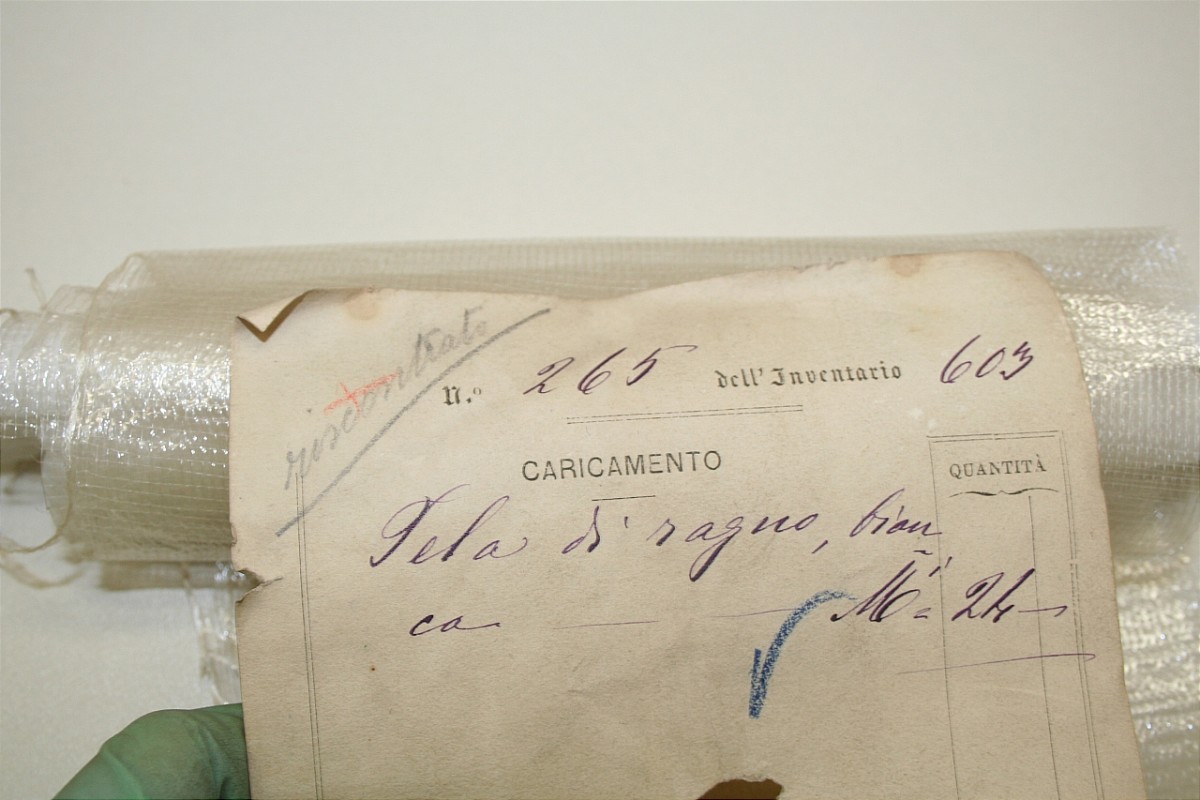 riscontrato
N.º 265 dell' Inventario 603
CARICAMENTO
QUANTITÀ
Tela di ragno, bian
ca — — M= 24